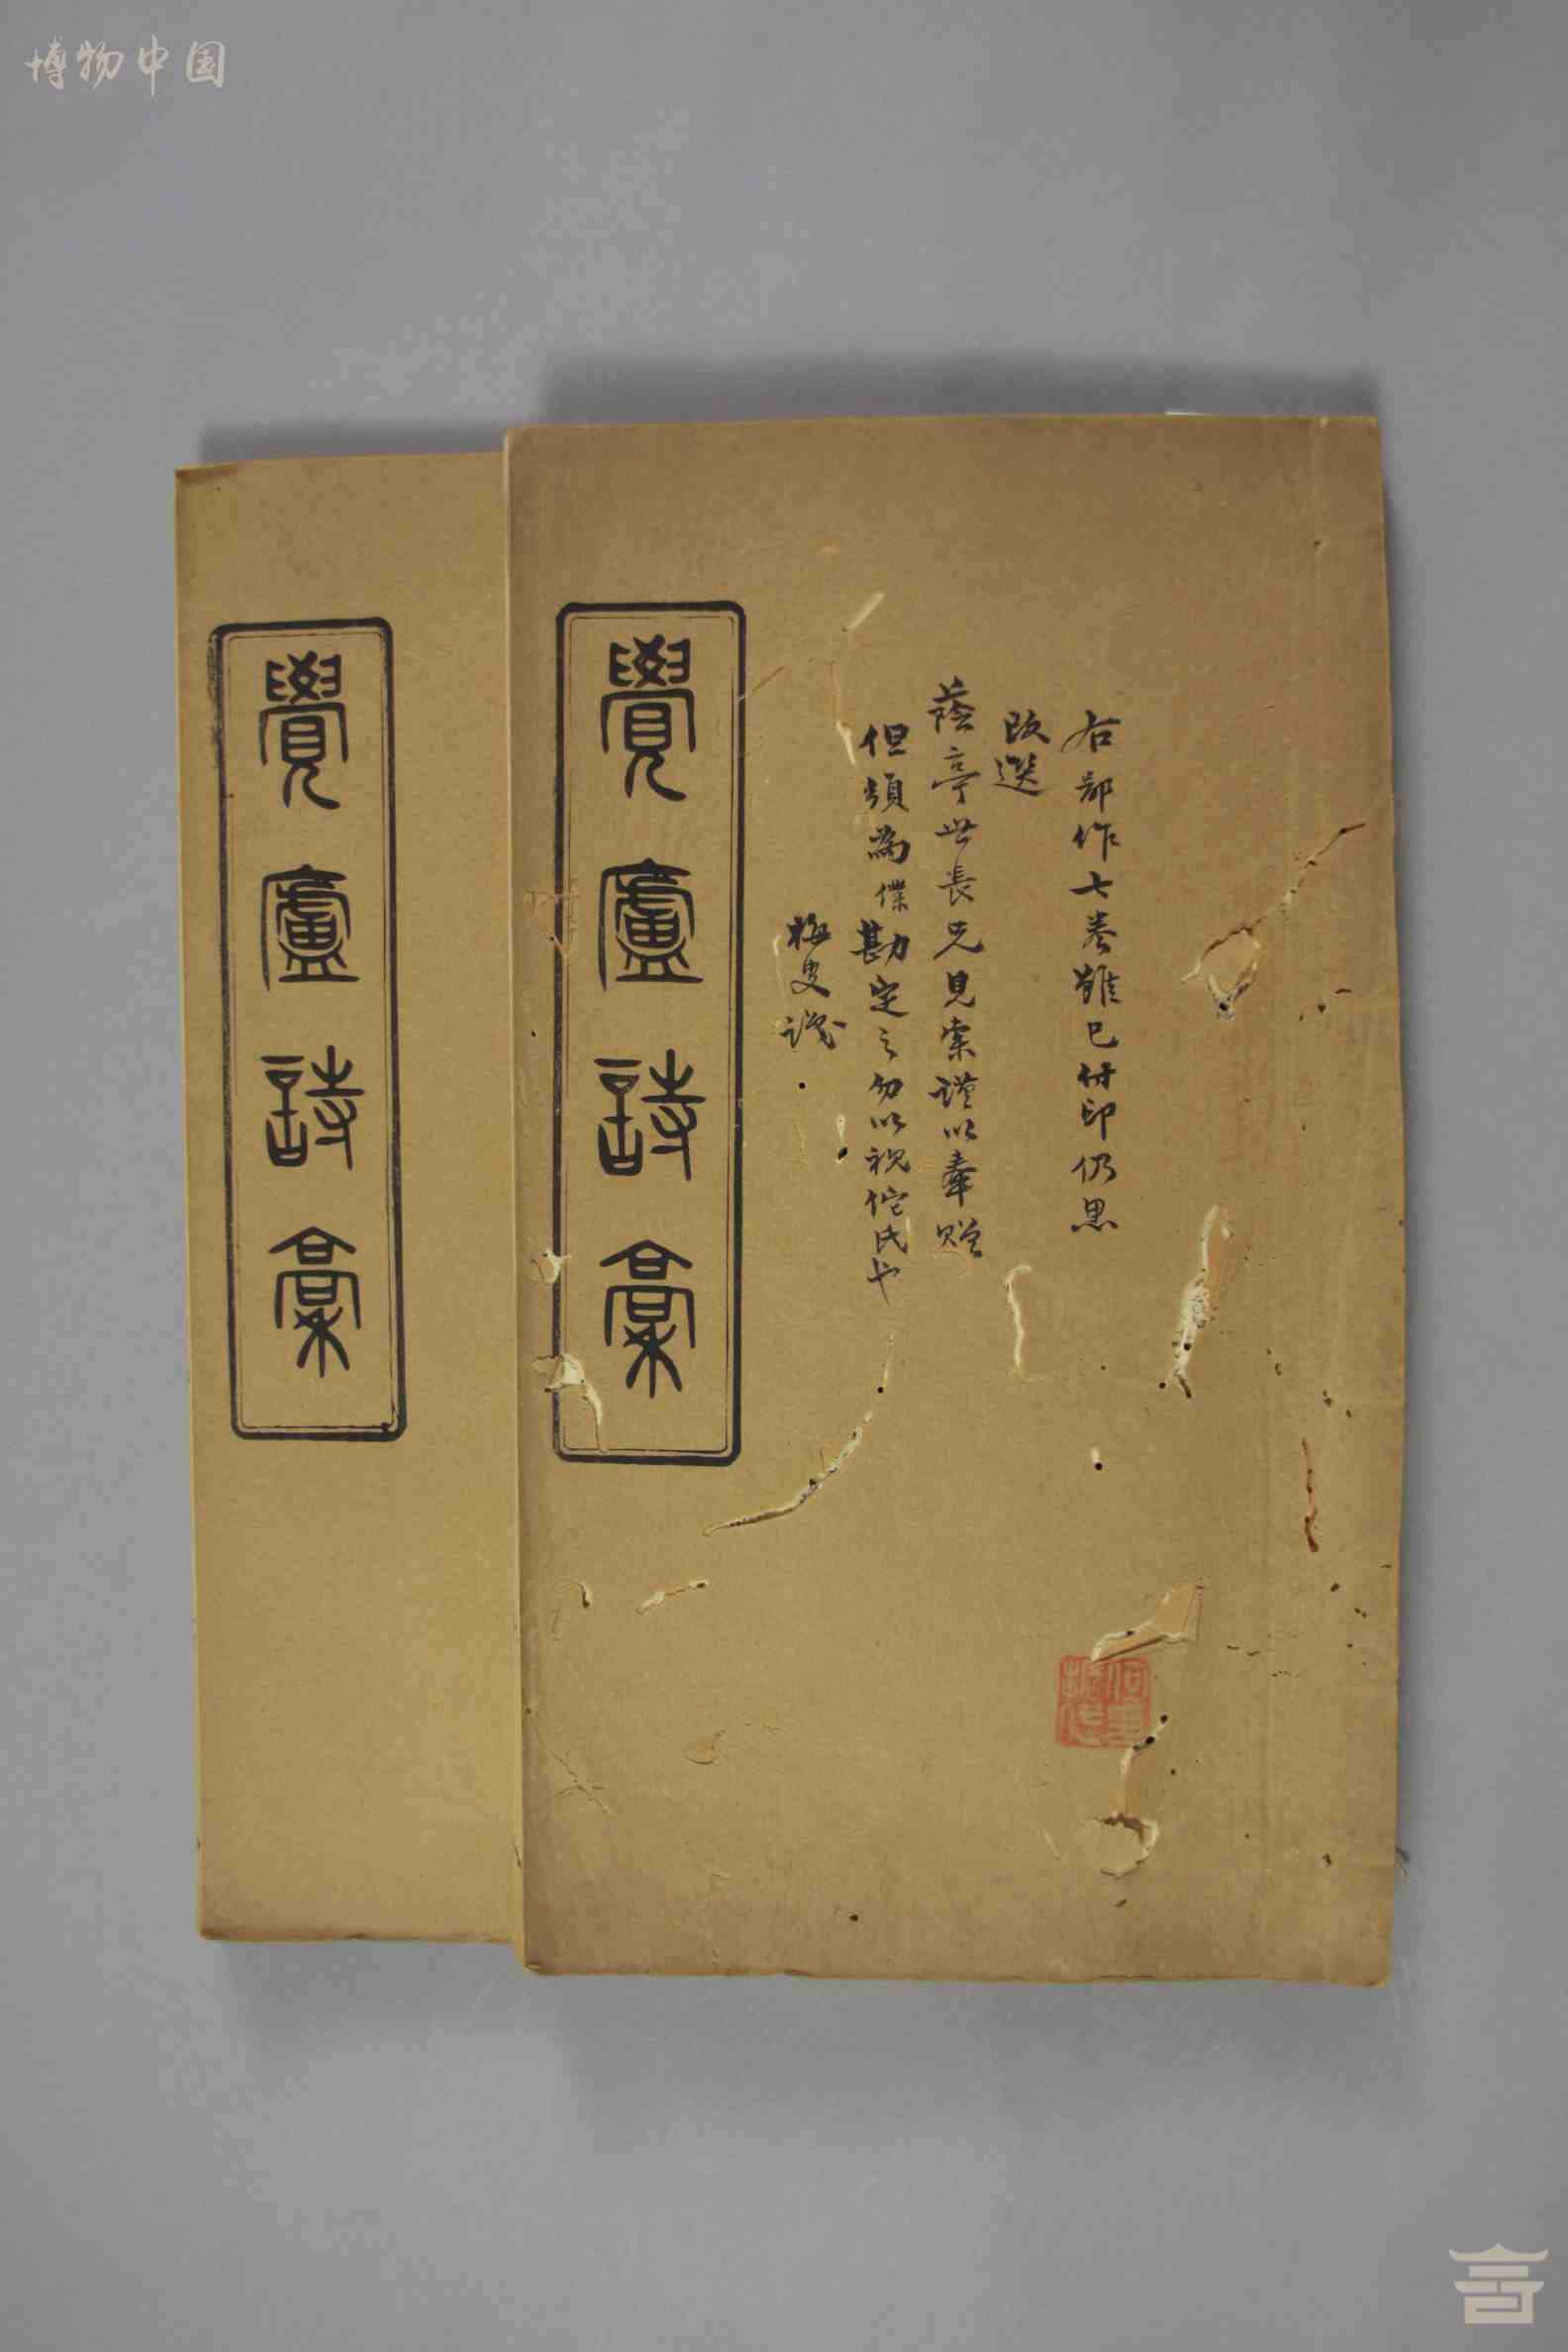 博物中国
右鄙作七卷雖已付印仍思
改選
蔭亭世長兄見索謹以奉贈
但須為僕勘定之勿以視佗氏也
梅叟識
覺廬詩稾
覺廬詩稾